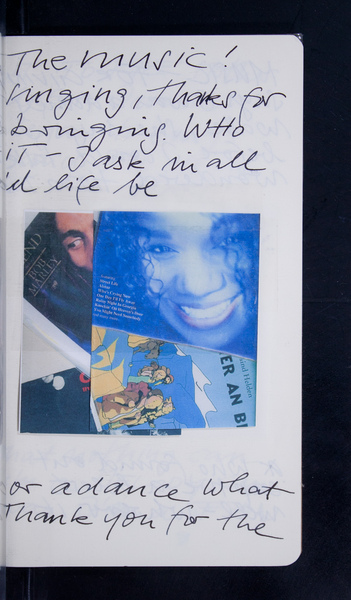 The music!
singing, thanks for
bringing. Who
iT - I ask in all
'd life be
END
BOB
MARLEY
ER AN BI
und Helden
or a dance what
Thank you for the